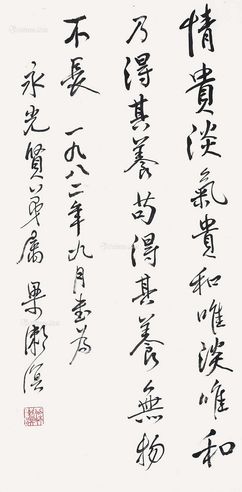 情貴淡氣貴和唯淡唯和
乃得其養苟得其養無物
不長 一九八二年九月書為
永光賢弟屬 梁漱溟